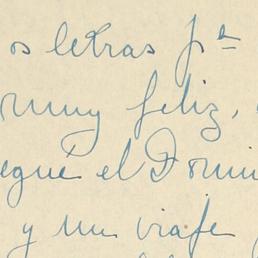 os letras pª
muy feliz,
egué el Domin
y un viaje